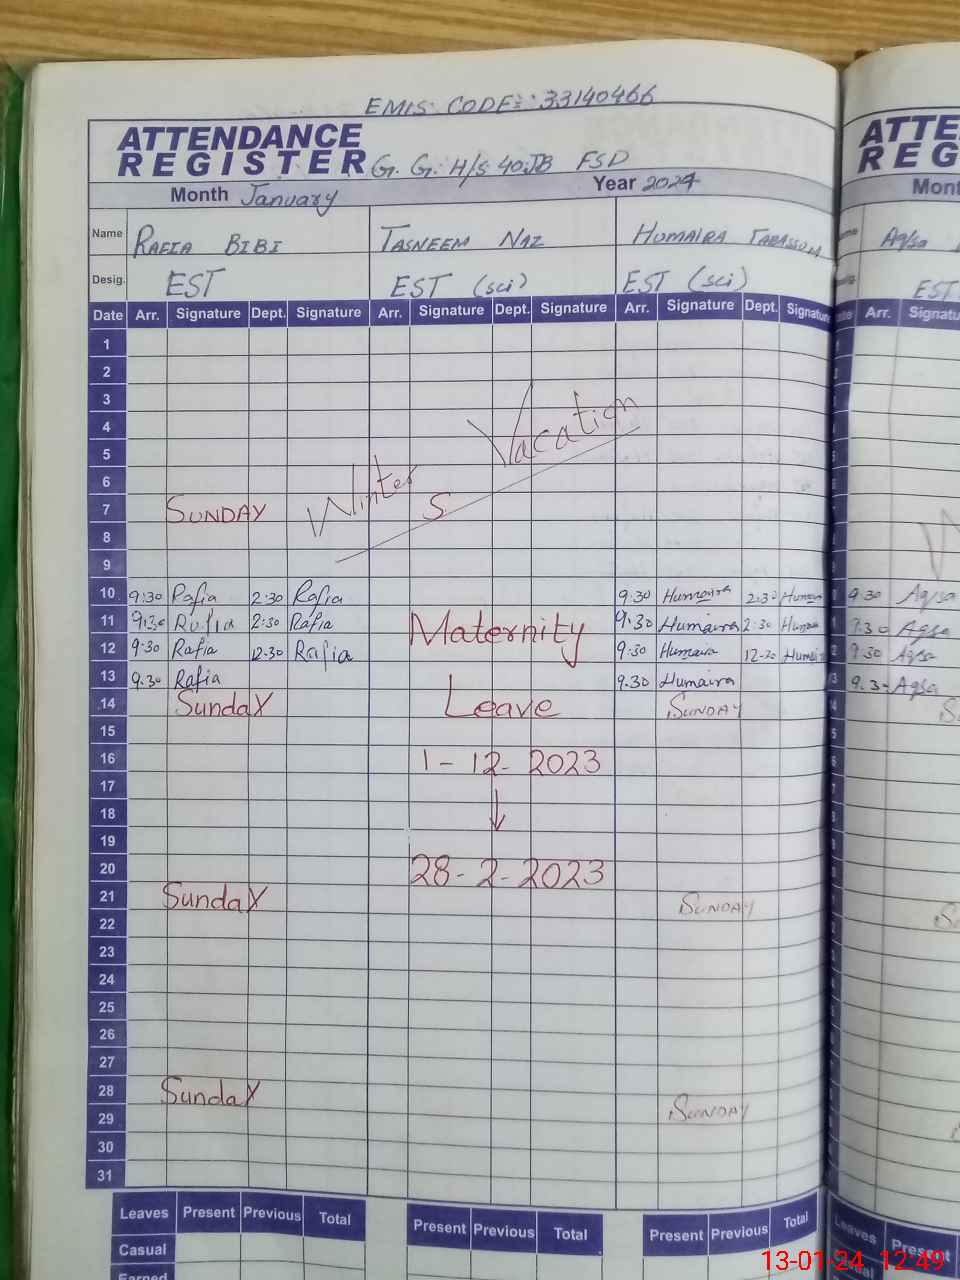 EMIS: CODE: 33140466
ATTENDANCE
REGISTER G. G. H/S 40.JB FSD
Month January Year 2024
Name RAFIA BIBI TASNEEM NAZ HUMAIRA TABASSUM Aqsa
Desig. EST EST (sci) EST (sci) EST
Date Arr. Signature Dept. Signature Arr. Signature Dept. Signature Arr. Signature Dept. Signature Arr.
1
2
3
4
5 Winter Vacation
6
7 SUNDAY S
8
9
10 9:30 Rafia 2:30 Rafia 9:30 Humaira 2:30 9:30 Aqsa
11 9:30 Rafia 2:30 Rafia Maternity 9:30 Humaira 2:30 9:30 Aqsa
12 9:30 Rafia 12:30 Rafia 9:30 Humaira 12-30 9:30 Aqsa
13 9.30 Rafia 9.30 Humaira Aqsa
14 Sunday Leave SUNDAY
15
16 1-12-2023
17
18
19
20 28-2-2023
21 Sunday SUNDAY
22
23
24
25
26
27
28 Sunday
29 SUNDAY
30
31
Leaves Present Previous Total Present Previous Total Present Previous Total Leaves Present
Casual
Earned
13-01-24 12:49